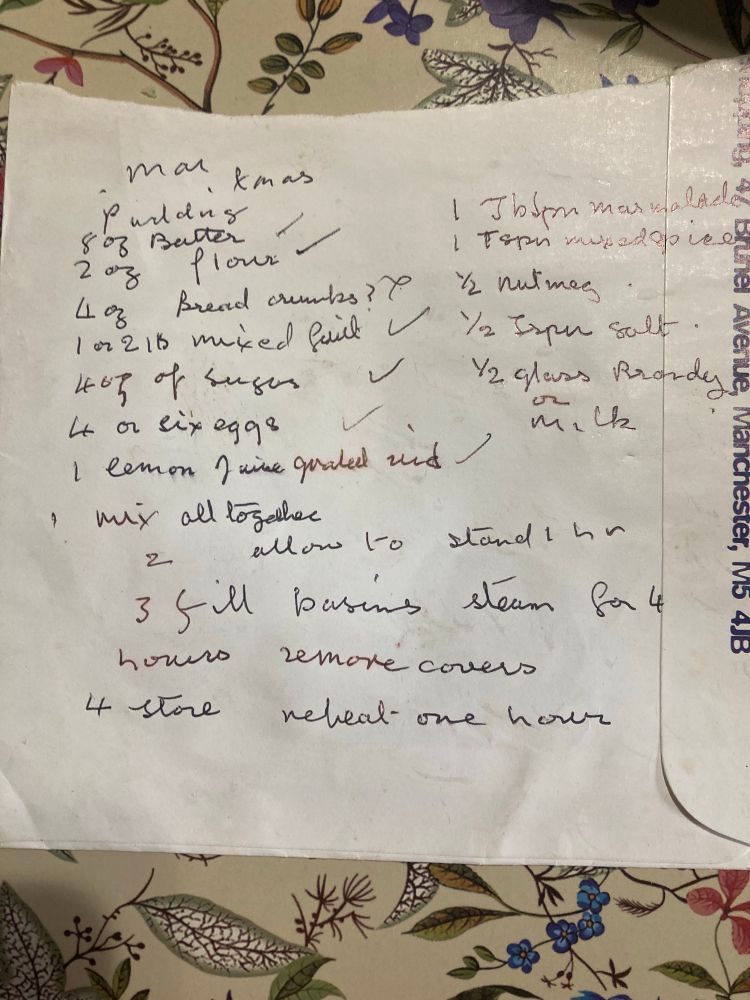 Xmas
Pudding
8 oz Butter ✓
2 oz flour ✓
4 oz Bread crumbs?
1 or 2 lb mixed fruit ✓
4 oz of sugar ✓
4 or six eggs ✓
1 lemon Juice grated rind ✓
1 Tbspn marmalade
1 Tspn mixed spice
½ nutmeg
½ Tspn salt
½ glass Brandy
or
milk
1 mix all together
2 allow to stand 1 hr
3 fill basins steam for 4
hours remove covers
4 store reheat one hour
47 Brunel Avenue, Manchester, M5 4JB